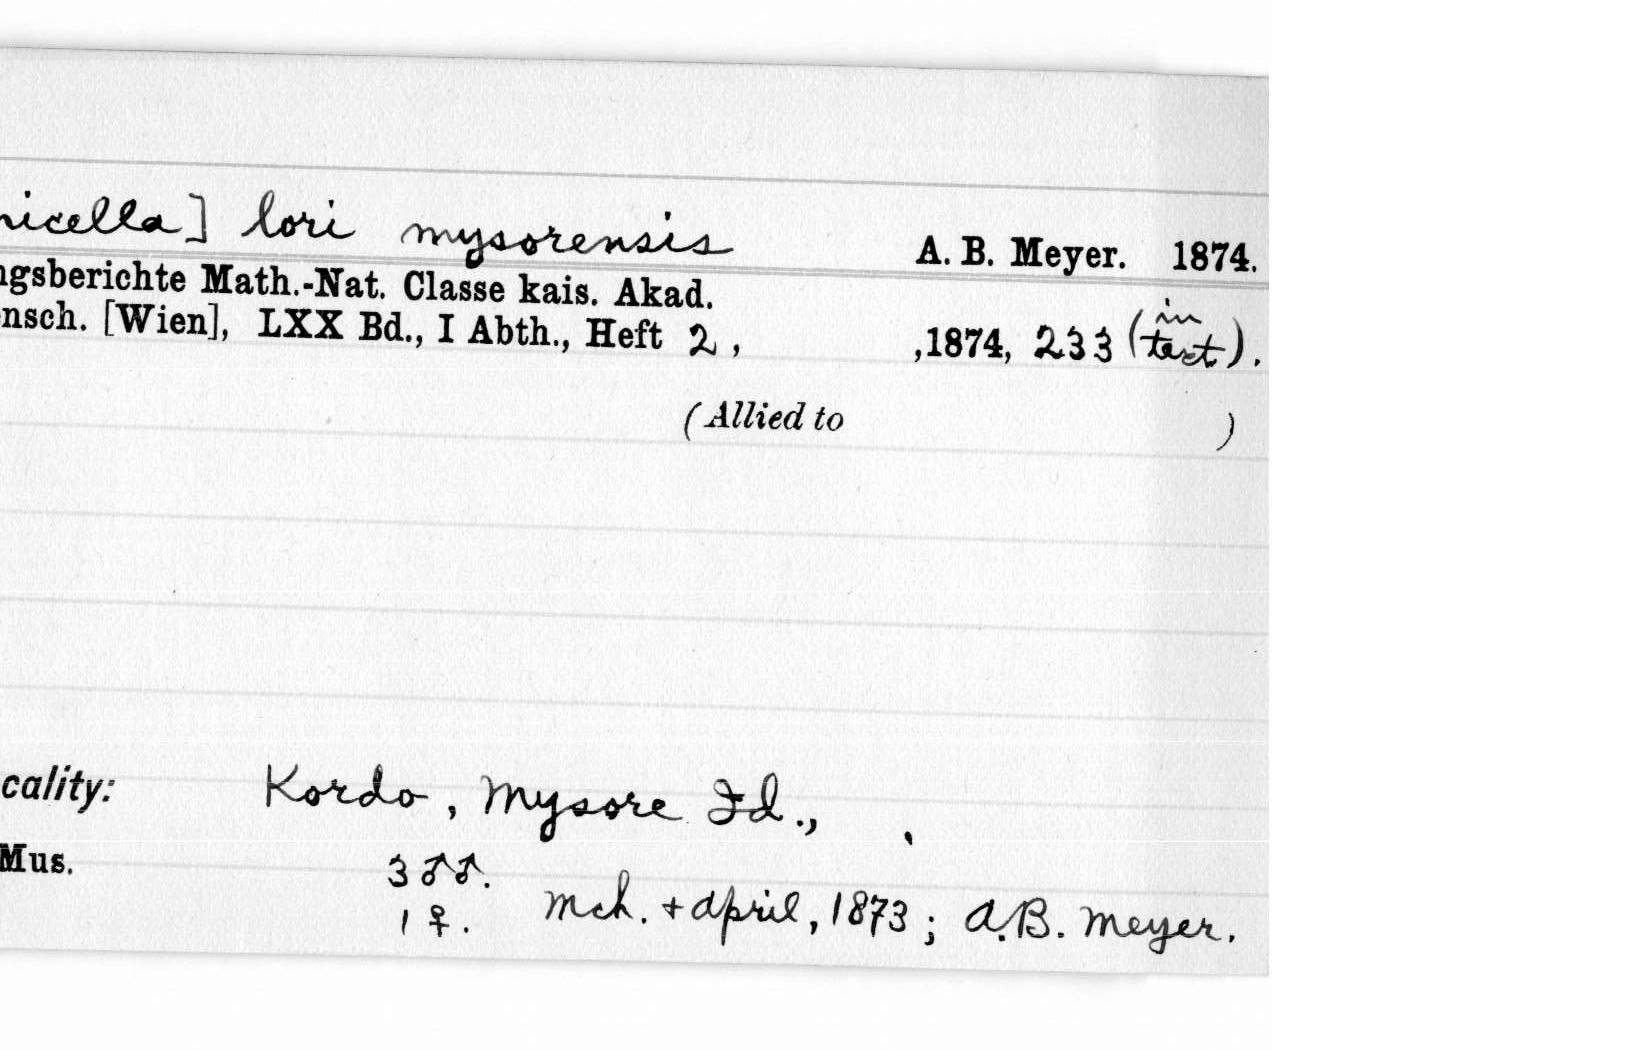 nicella] lori mysorensis A. B. Meyer. 1874.
ngsberichte Math.-Nat. Classe kais. Akad.
nsch. [Wien], LXX Bd., I Abth., Heft 2, ,1874, 233 (in text).
(Allied to )
cality: Kordo, Mysore Id.,
Mus. 3 ♂♂.
1 ♀. Mch. + April, 1873; A.B. Meyer.